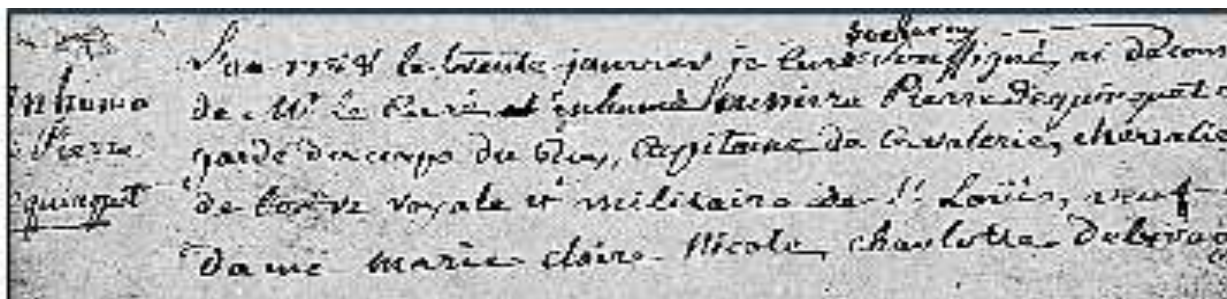 inhumé
Pierre
quinquet
L'an
le trente janvier je curé soussigné, ai
de Mr le Curé inhumé messire Pierre de quinquet
garde du corps du Roy, Capitaine de Cavalerie, chevalie
de l'ordre royale et militaire de St Loüis, veuf
dame marie claire Nicole, charlotte